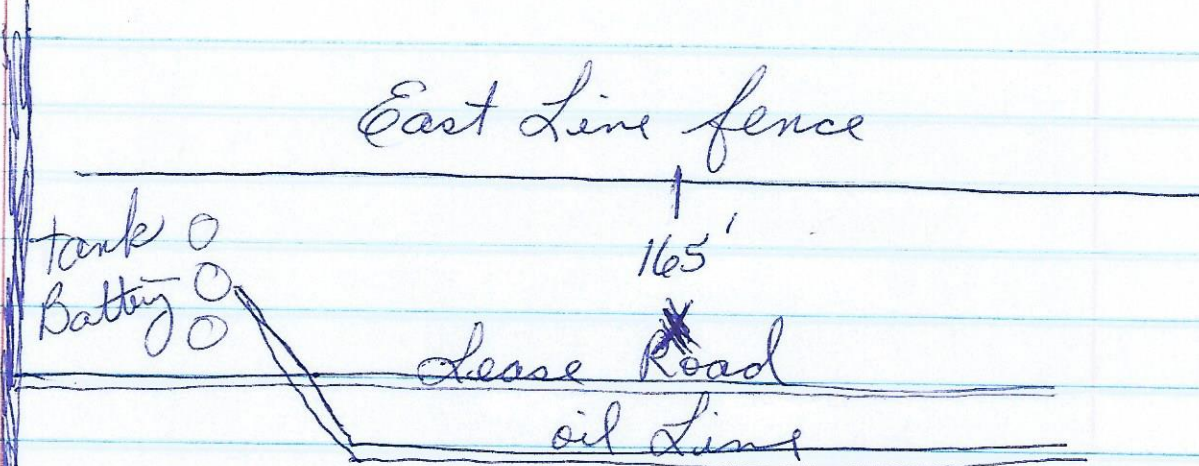 East Line fence
165'
tank
Battery
Lease Road
oil Line